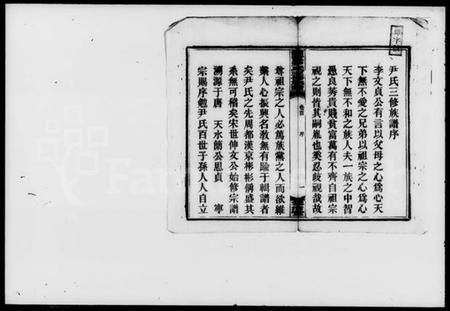 尹氏三修族譜序
李文貞公有言以父母之心為心天
下無不愛之兄弟以祖宗之心為心
天下無不和之族人夫一族之中智
愚良莠貴賤貧富萬有不齊自祖宗
視之則皆其嗣胤也奚忍歧視哉故
尊祖宗之人必篤族黨之人而欲維
繫人心振興名教無有踰于輯譜者
矣尹氏之先周都漢京彬彬偁盛其
系無可稽矣宋世伸文公始修宗譜
溯源于唐 天水簡公思貞 寧
宗賜序勉尹氏百世子孫人人自立
卷首 序